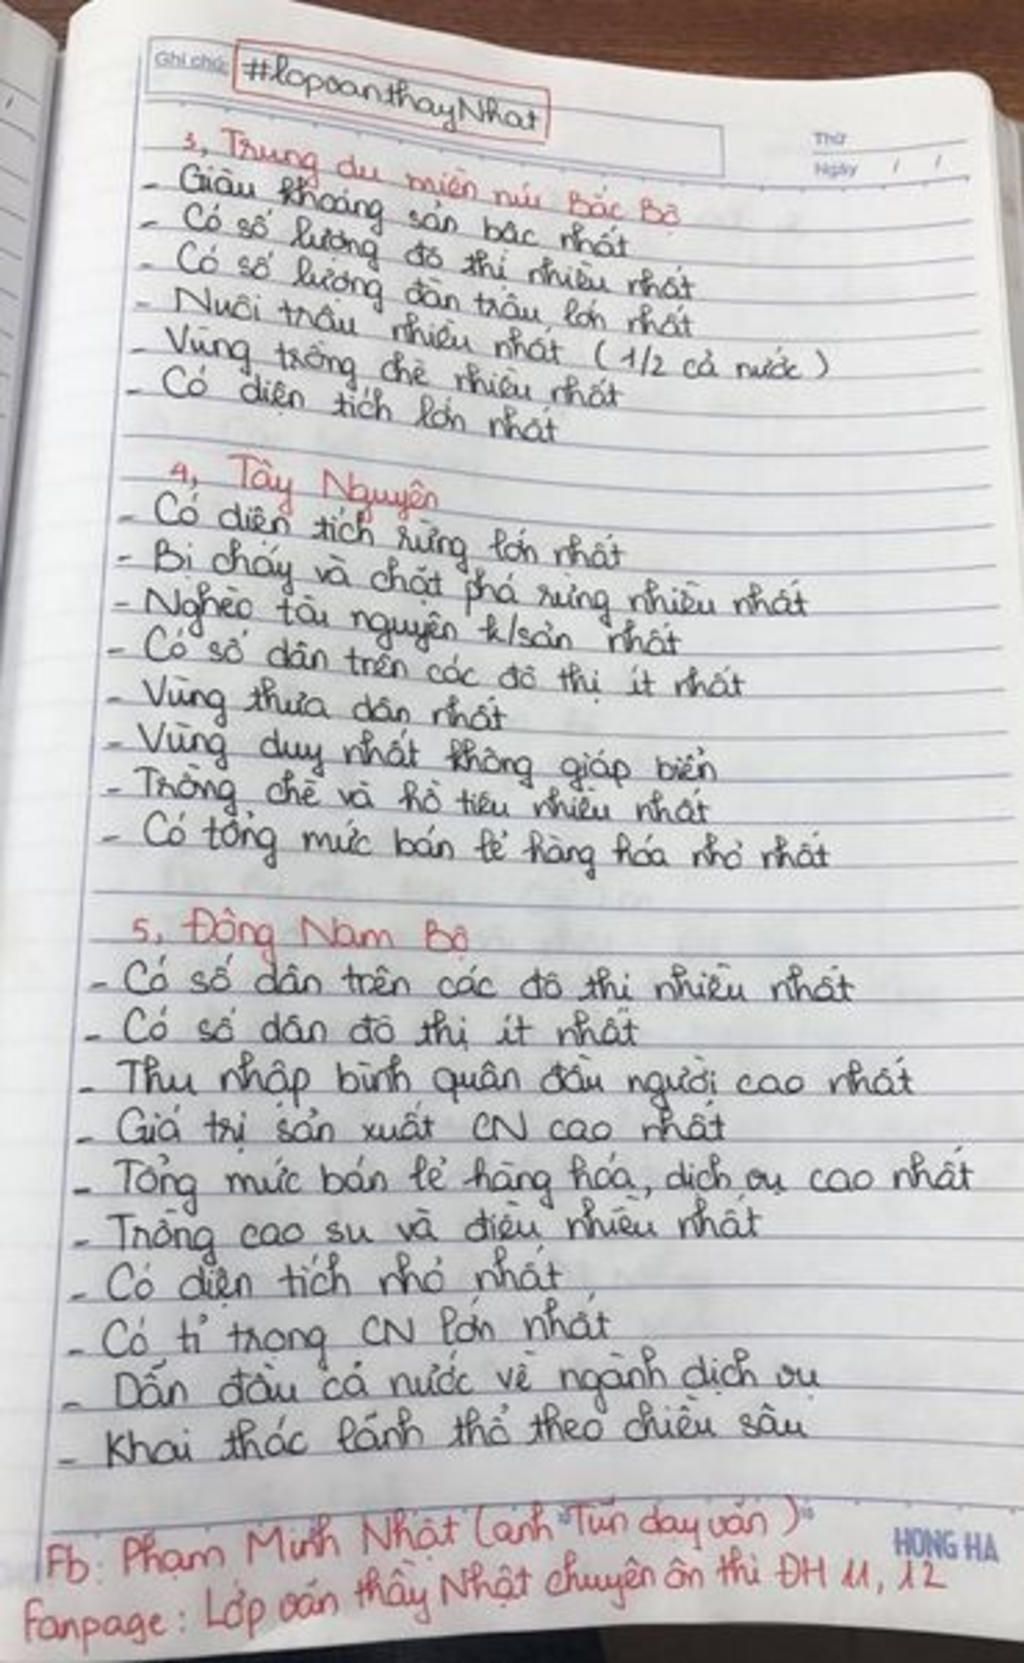 Ghi chú: #lopvanthayNhat
Thứ
Ngày / /
3, Trung du miền núi Bắc Bộ
- Giàu khoáng sản bậc nhất
- Có số lượng đô thị nhiều nhất
- Có số lượng đàn trâu lớn nhất
- Nuôi trâu nhiều nhất (1/2 cả nước)
- Vùng trồng chè nhiều nhất
- Có diện tích lớn nhất
4, Tây Nguyên
- Có diện tích rừng lớn nhất
- Bị cháy và chặt phá rừng nhiều nhất
- Nghèo tài nguyên k/sản nhất
- Có số dân trên các đô thị ít nhất
- Vùng thưa dân nhất
- Vùng duy nhất không giáp biển
- Trồng chè và hồ tiêu nhiều nhất
- Có tổng mức bán lẻ hàng hóa nhỏ nhất
5, Đông Nam Bộ
- Có số dân trên các đô thị nhiều nhất
- Có số dân đô thị ít nhất
- Thu nhập bình quân đầu người cao nhất
- Giá trị sản xuất CN cao nhất
- Tổng mức bán lẻ hàng hóa, dịch vụ cao nhất
- Trồng cao su và điều nhiều nhất
- Có diện tích nhỏ nhất
- Có tỉ trọng CN lớn nhất
- Dẫn đầu cả nước về ngành dịch vụ
- Khai thác lãnh thổ theo chiều sâu
Fb: Phạm Minh Nhật (anh Tun dạy văn)
HONG HA
Fanpage: Lớp văn thầy Nhật chuyên ôn thi ĐH 11, 12